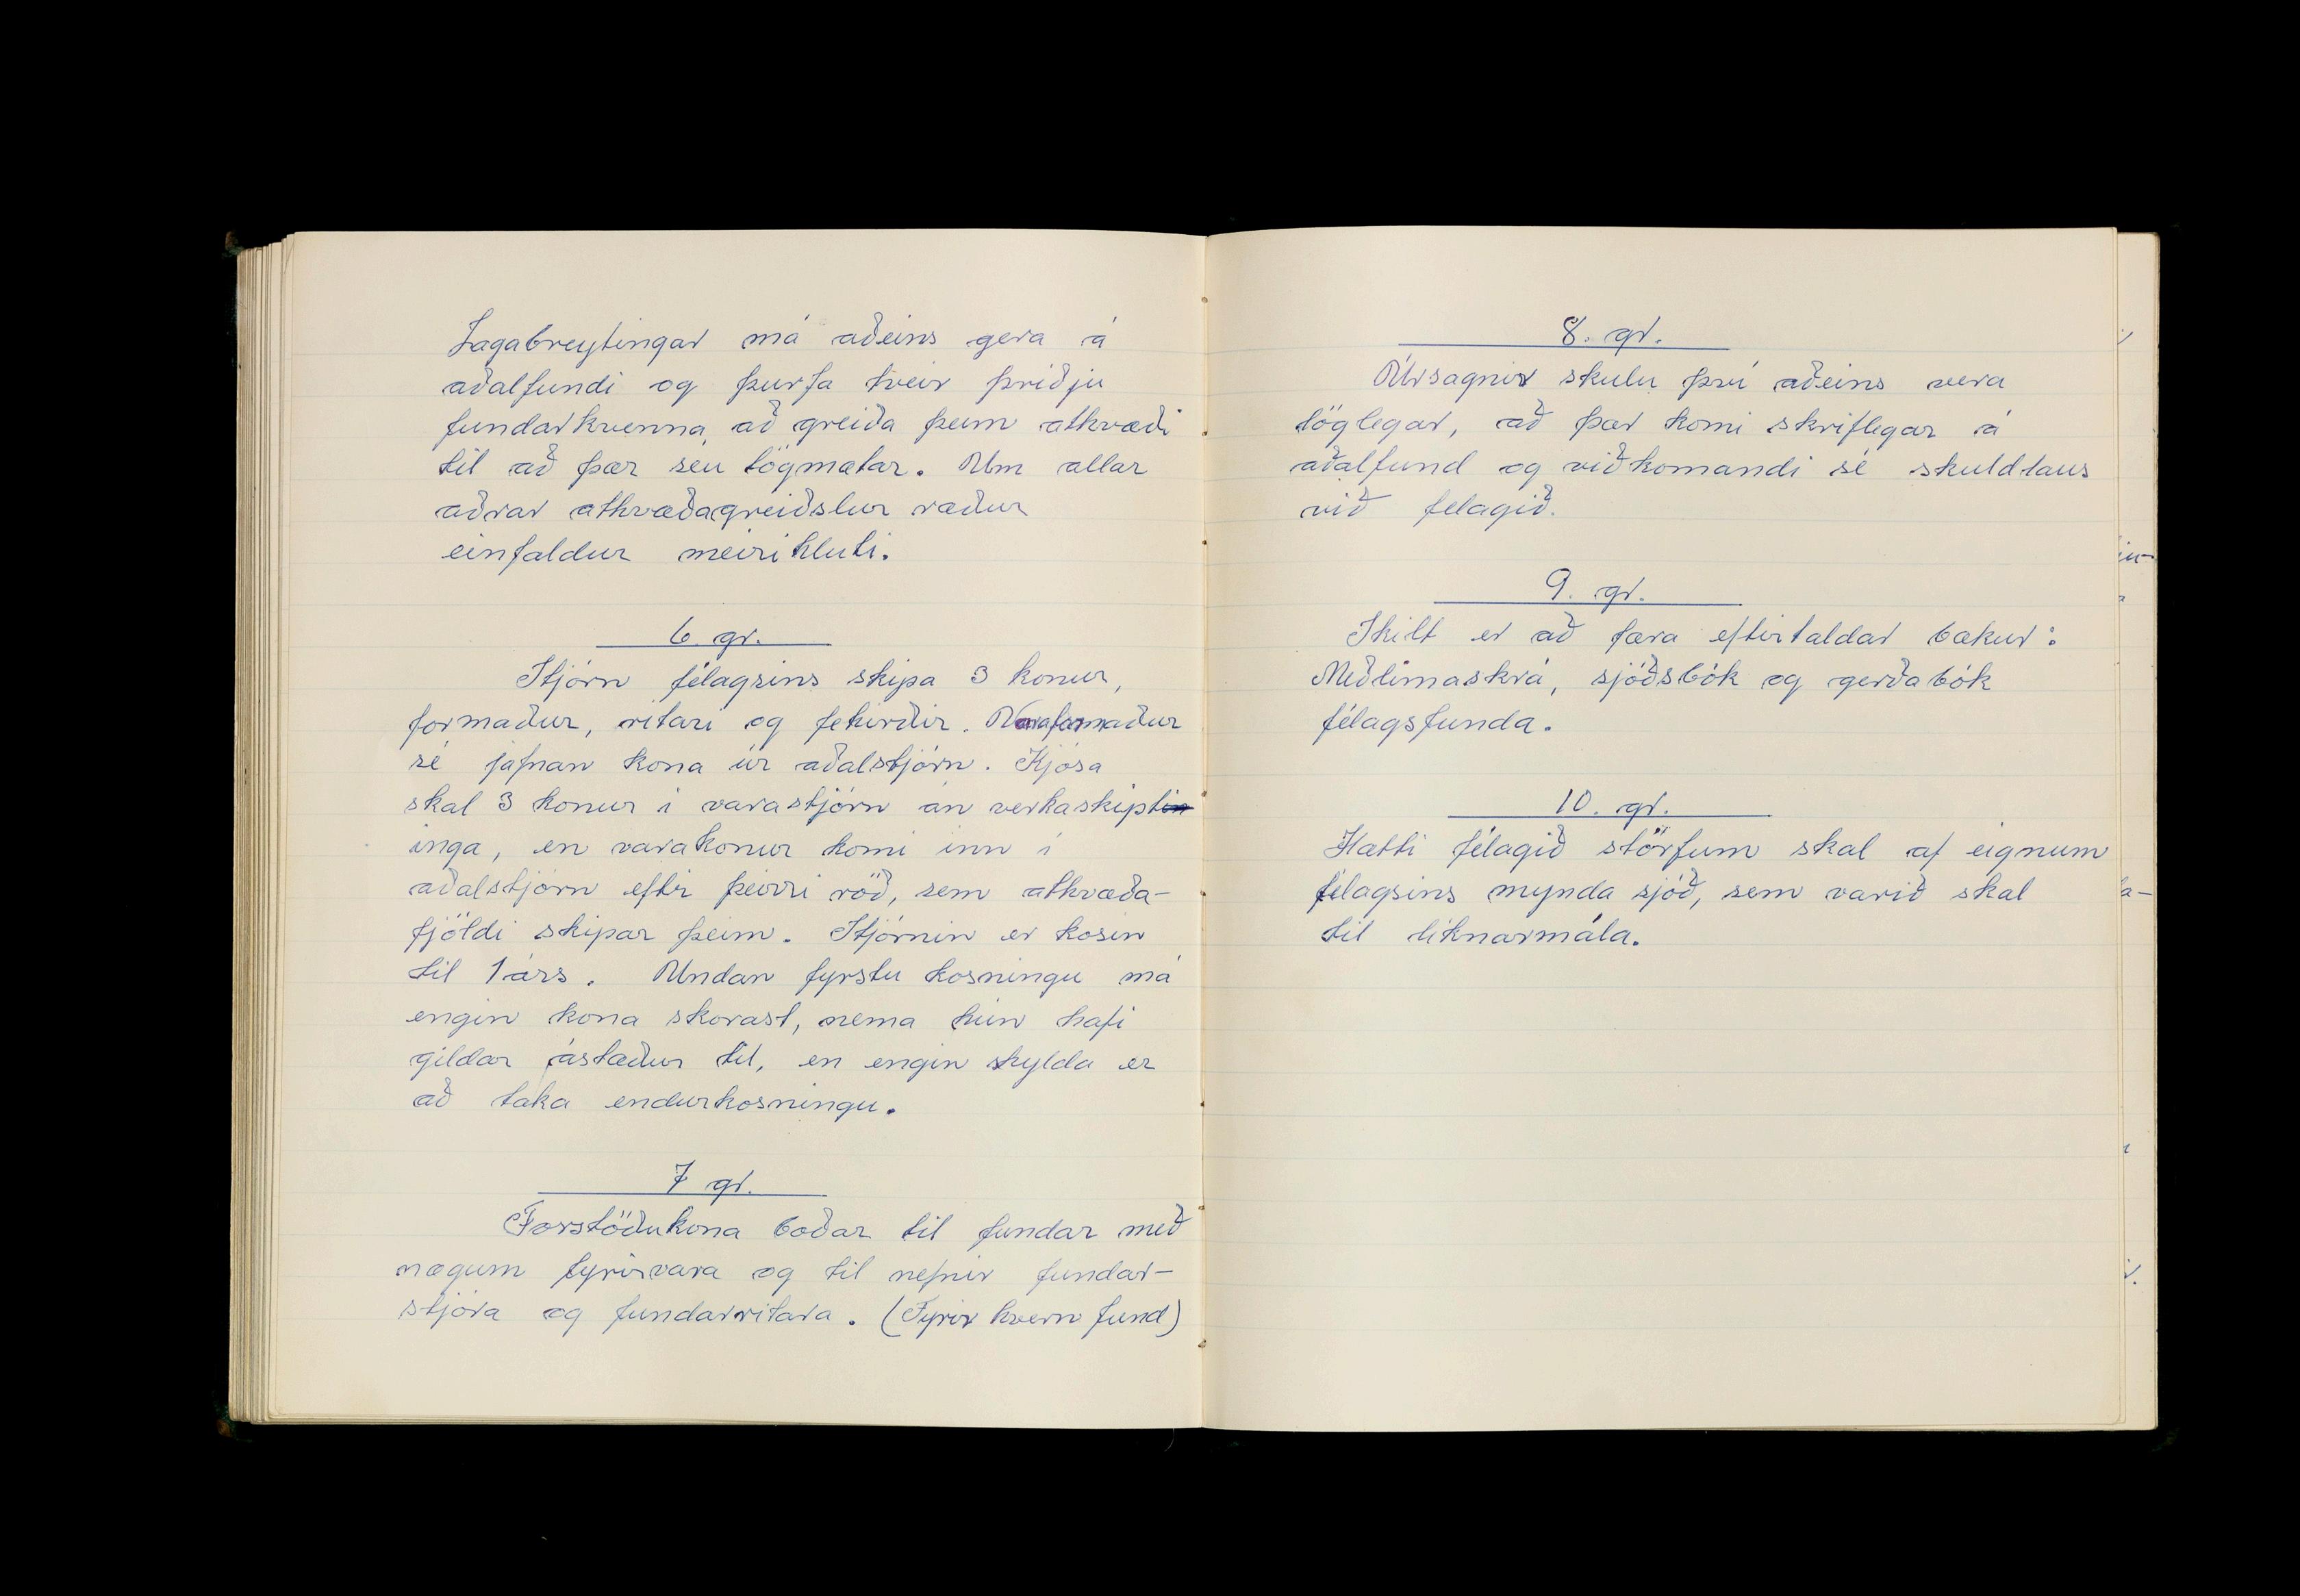 Lagabreytingar má aðeins gera á
aðalfundi og þurfa tveir þriðju
fundarkvenna, að greiða þeim atkvæði
til að þær séu lögmætar. Um allar
aðrar atkvæðagreiðslur ræður
einfaldur meirihluti.
6. gr.
Stjórn félagsins skipa 3 konur,
formaður, ritari og fehirðir. Varaformaður
sé jafnan kona úr aðalstjórn. Kjósa
skal 3 konur í varastjórn án verkaskipt
inga, en varakonur komi inn í
aðalstjórn eftir þeirri röð, sem atkvæða-
fjöldi skipar þeim. Stjórnin er kosin
til 1 árs. Undan fyrstu kosningu má
engin kona skorast, nema hún hafi
gildar ástæður til, en engin skylda er
að taka endurkosningu.
7 gr.
Forstöðukona boðar til fundar með
nægum fyrirvara og til nefnir fundar-
stjóra og fundarritara. (Fyrir hvern fund)
8. gr.
Úrsagnir skulu því aðeins vera
löglegar, að þær komi skriflegar á
aðalfund og viðkomandi sé skuldlaus
við felagið.
9. gr.
Skilt er að færa eftirtaldar bækur:
Meðlimaskrá, sjóðsbók og gerðabók
félagsfunda.
10. gr.
Hætti félagið störfum skal af eignum
félagsins mynda sjóð, sem varið skal
til líknarmála.